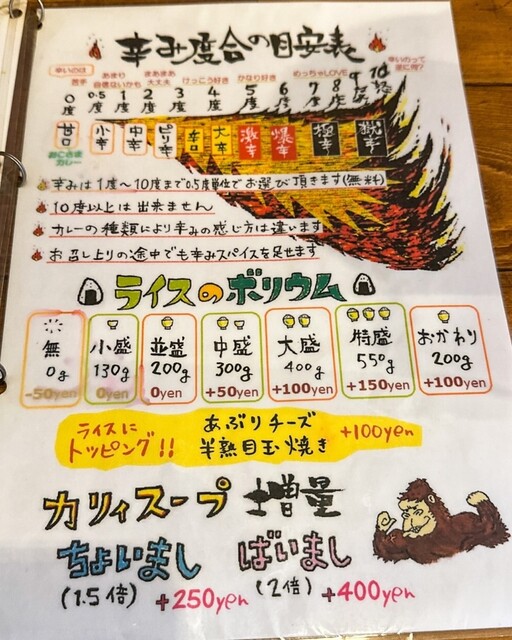 辛み度合の目安表
辛いのは苦手 あまり自信ないかも まあまあ大丈夫 けっこう好き かなり好き めっちゃLOVE 辛いのって逆に何?
0度 0.5度 1度 2度 3度 4度 5度 6度 7度 8度 9度 10度
甘口 小辛 中辛 ピリ辛 辛口 大辛 激辛 爆辛 極辛 獄辛
おこさまカレー
辛みは1度〜10度まで0.5度単位でお選び頂きます(無料)
10度以上は出来ません
カレーの種類により辛みの感じ方は違います
お召し上りの途中でも辛みスパイスを足せます
ライスのボリウム
無 小盛 並盛 中盛 大盛 特盛 おかわり
0g 130g 200g 300g 400g 550g 200g
-50yen 0yen 0yen +50yen +100yen +150yen +100yen
ライスに あぶりチーズ
トッピング!! 半熟目玉焼き +100yen
カリィスープ 増量
ちょいまし ばいまし
(1.5倍) +250yen (2倍) +400yen